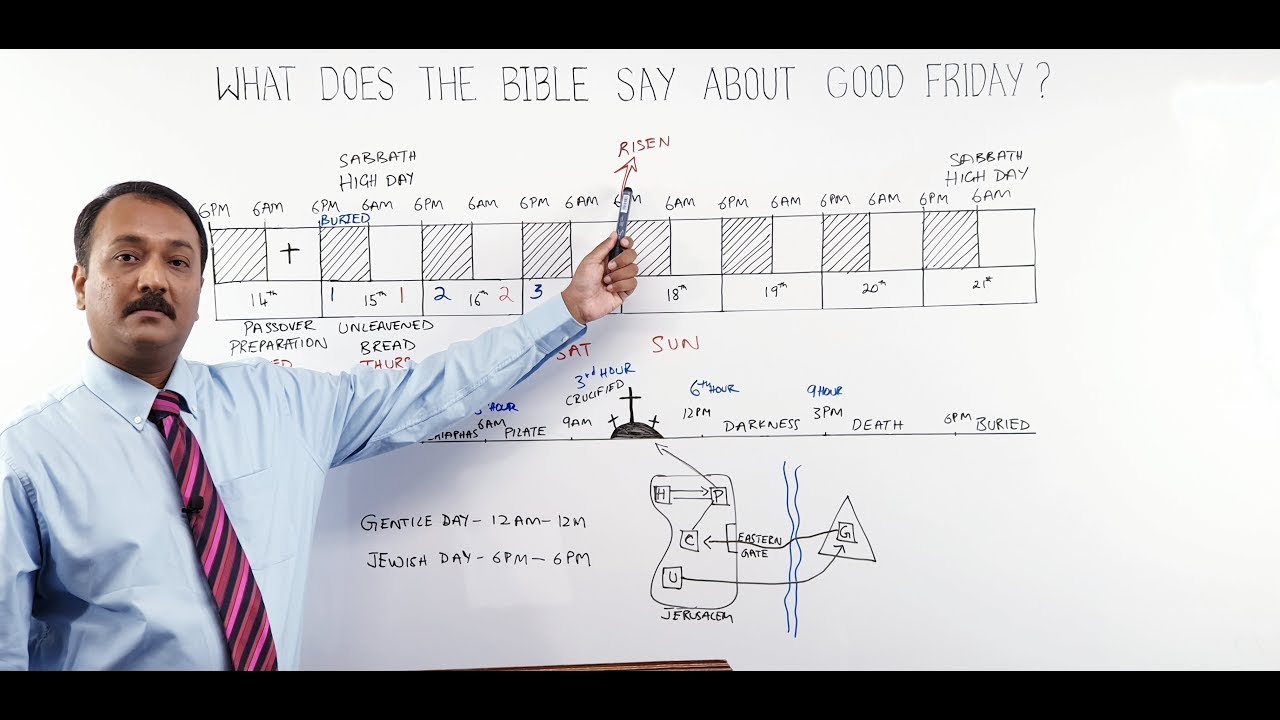 WHAT DOES THE BIBLE SAY ABOUT GOOD FRIDAY?
RISEN
SABBATH
HIGH DAY
SABBATH
HIGH DAY
6PM 6AM 6PM 6AM 6PM 6AM 6PM 6AM 6AM 6PM 6AM 6PM 6AM 6PM 6AM
BURIED
14th 1 15th 1 2 16th 2 3 18th 19th 20th 21st
PASSOVER
PREPARATION
UNLEAVENED
BREAD
THURS
SAT SUN
3rd HOUR
CRUCIFIED
6th HOUR
9 HOUR
HOUR
6AM 9AM 12PM 3PM 6PM
PILATE DARKNESS DEATH BURIED
H P
C
EASTERN
GATE
G
U
JERUSALEM
GENTILE DAY - 12AM - 12M
JEWISH DAY - 6PM - 6PM